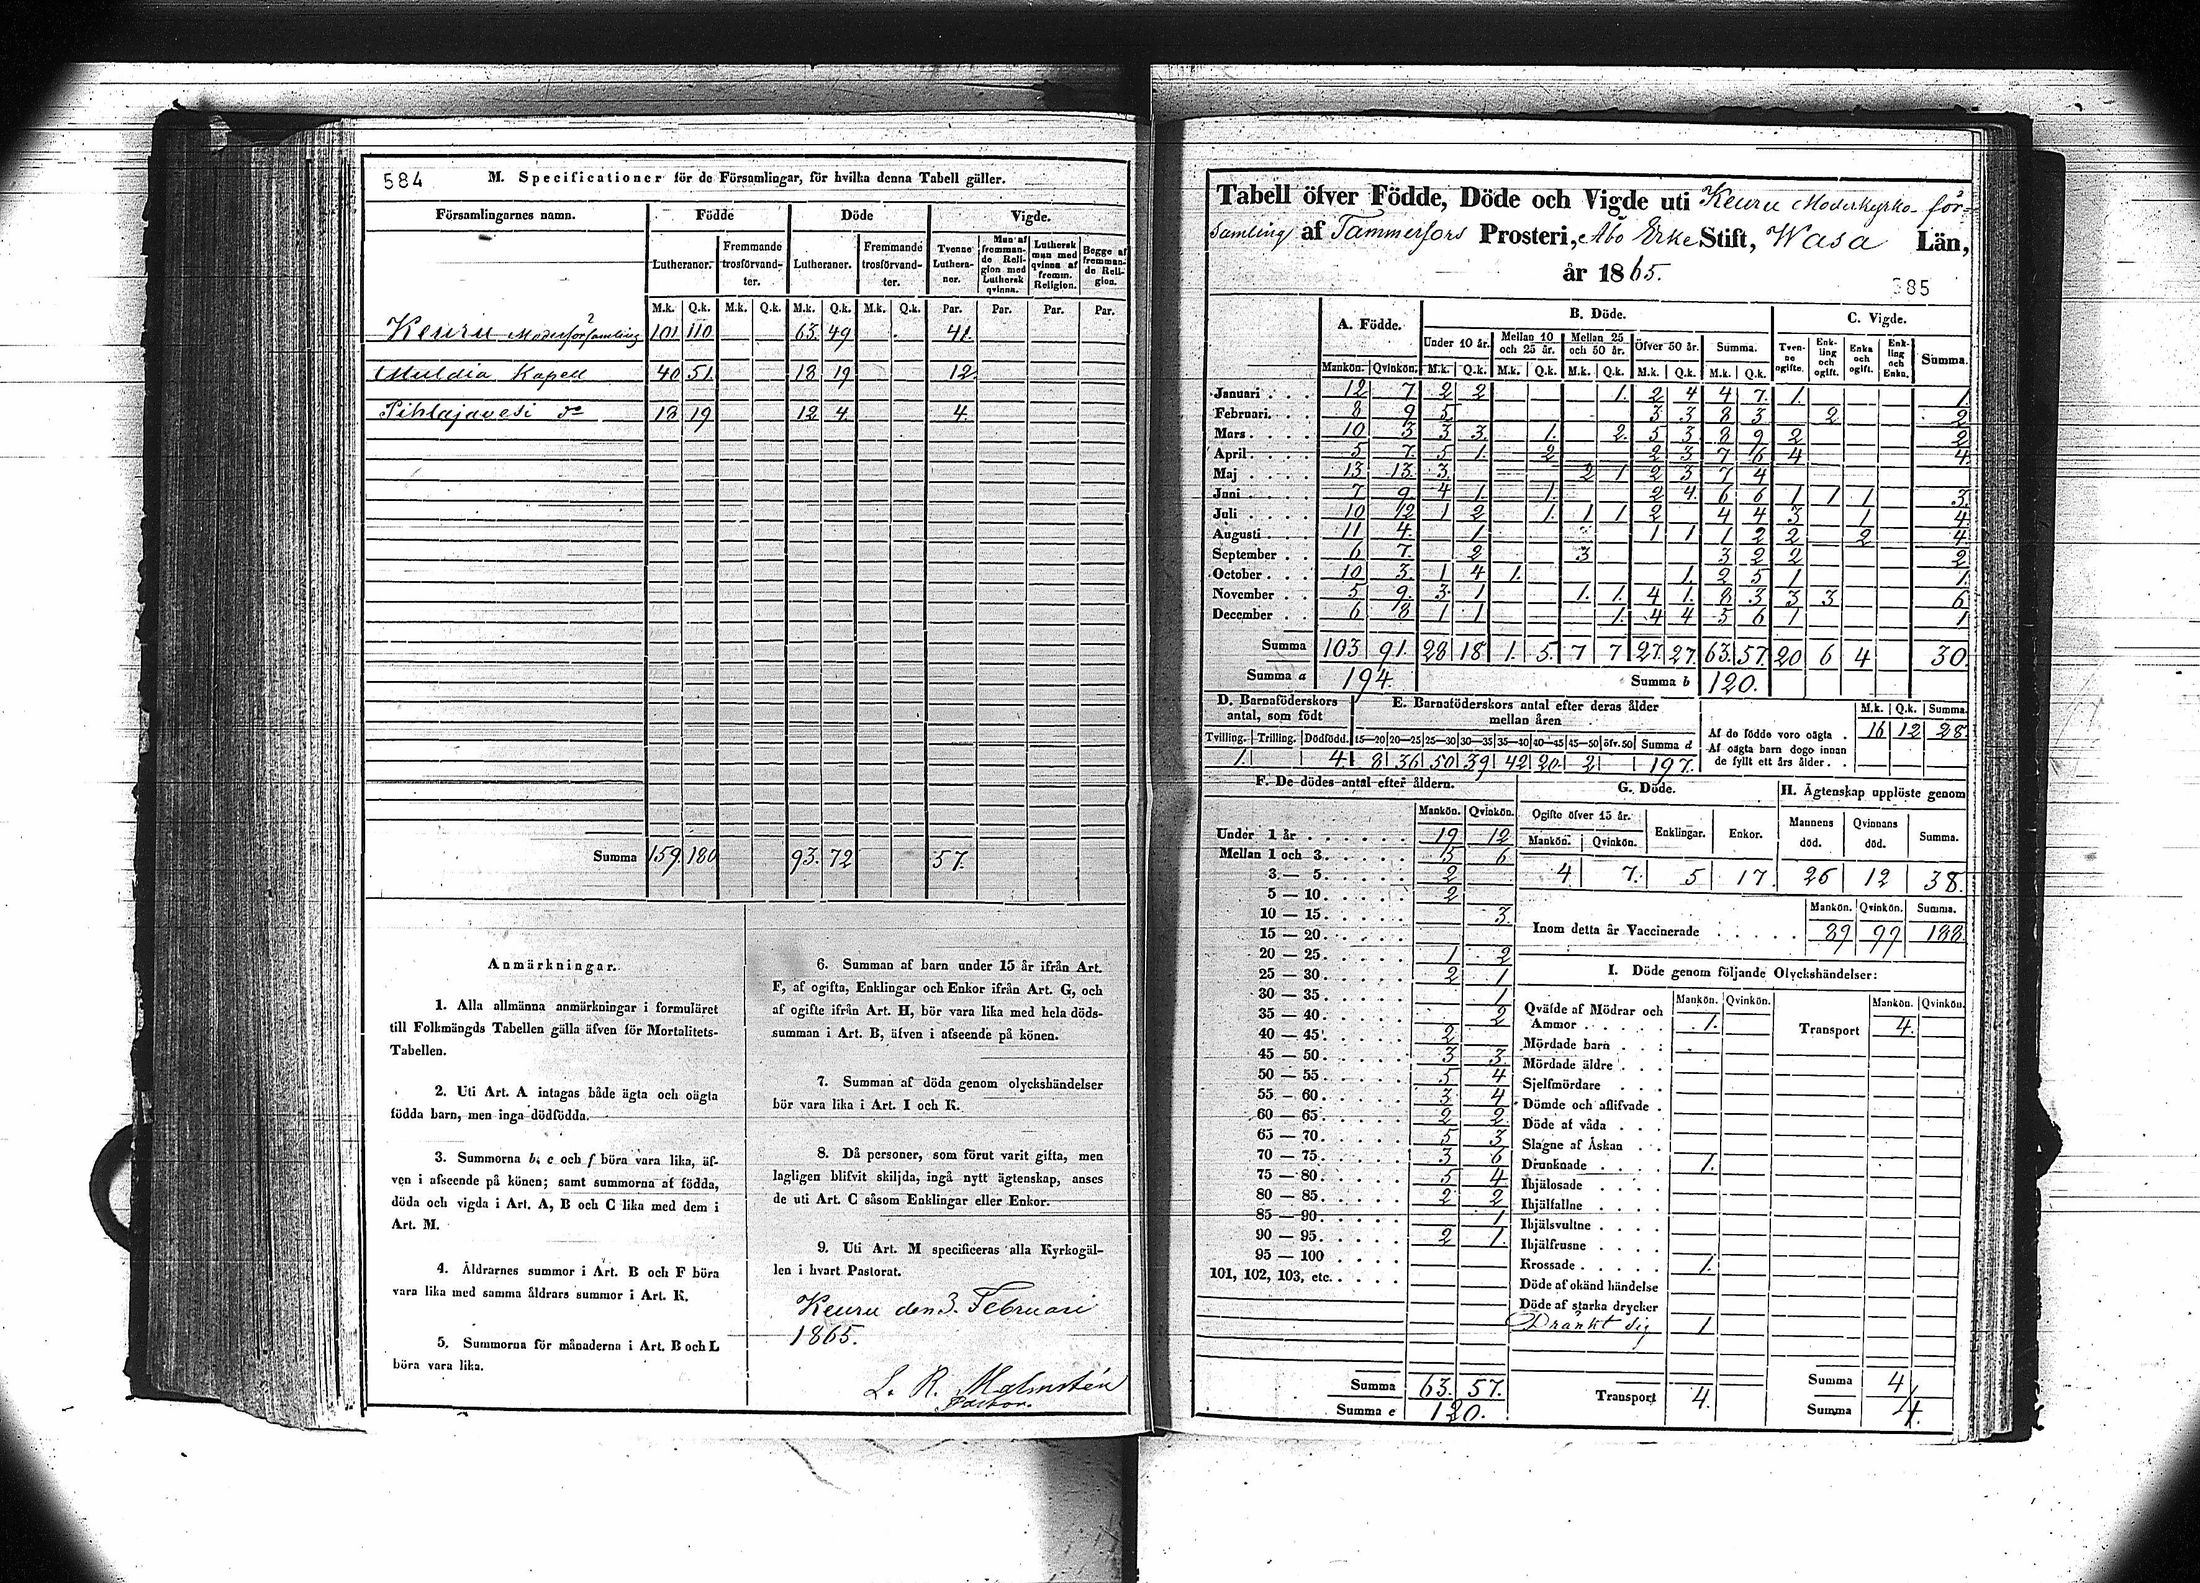 584
M. Specificationer för de Församlingar, för hvilka denna Tabell gäller.
Församlingarnes namn. Födde Döde Vigde.
Lutheraner. Fremmande trosförvandter. Lutheraner. Fremmande trosförvandter. Tvenne Lutheraner. Man af fremmande Religion med Luthersk qvinna. Luthersk man med qvinna af fremm. Religion. Begge af fremmande Religion.
M.k. Q.k. M.k. Q.k. M.k. Q.k. M.k. Q.k. Par. Par. Par. Par.
Keuru Moderförsamling 101 110 63. 49 41.
Muldia Kapell 40 51. 18 19 12.
Pihlajavesi do 18 19 12 4. 4.
Summa 159. 180 93. 72 57.
Anmärkningar.
1. Alla allmänna anmärkningar i formuläret
till Folkmängds Tabellen gälla äfven för Mortalitets-
Tabellen.
2. Uti Art. A intagas både ägta och oägta
födda barn, men inga dödfödda.
3. Summorna b, e och f böra vara lika, äf-
ven i afseende på könen; samt summorna af födda,
döda och vigda i Art. A, B och C lika med dem i
Art. M.
4. Åldrarnes summor i Art. B och F böra
vara lika med samma åldrars summor i Art. K.
5. Summorna för månaderna i Art. B och L
böra vara lika.
6. Summan af barn under 15 år ifrån Art.
F, af ogifta, Enklingar och Enkor ifrån Art. G, och
af ogifte ifrån Art. H, bör vara lika med hela döds-
summan i Art. B, äfven i afseende på könen.
7. Summan af döda genom olyckshändelser
bör vara lika i Art. I och K.
8. Då personer, som förut varit gifta, men
lagligen blifvit skiljda, ingå nytt ägtenskap, anses
de uti Art. C såsom Enklingar eller Enkor.
9. Uti Art. M specificeras alla Kyrkogäl-
len i hvart Pastorat.
Keuru den 3. Februari
1865.
L. R. Malmstén
Pastor.
Tabell öfver Födde, Döde och Vigde uti Keuru Moderkyrko-för=
samling af Tammerfors Prosteri, Åbo Erke Stift, Wasa Län,
år 1865.
585
A. Födde. B. Döde. C. Vigde.
Under 10 år. Mellan 10 och 25 år. Mellan 25 och 50 år. Öfver 50 år. Summa. Tvenne ogifte. Enkling och ogift. Enka och ogift. Enkling och Enka. Summa.
Mankön. Qvinkön. M.k. Q.k. M.k. Q.k. M.k. Q.k. M.k. Q.k. M.k. Q.k.
Januari 12 7 2 2 1. 2 4 4 7. 1. 1.
Februari. 8 9 5 3 3 8 3 2 2
Mars 10 3 3 3. 1. 2. 5 3 8 9 2 2
April 5 7. 5 1. 2 2 3 7 6 4 4.
Maj 13 13. 3. 2 1 2 3 7 4
Juni 7 9 4 1. 1. 2 4. 6 6 1 1 1 3.
Juli 10 12 1 2 1. 1 1 2 4 4 3 1 4
Augusti 11 4. 1 1 1 1 2 2 2 4.
September 6 7. 2 3 3 2 2 2
October 10 3. 1 4 1. 1. 2 5 1 1.
November 5 9. 3. 1 1. 1. 4 1. 8 3 3 3 6
December 6 8 1 1 1. 4 4 5 6 1 1
Summa 103 91. 28 18 1. 5. 7 7 27. 27. 63. 57. 20 6 4 30.
Summa a 194. Summa b 120.
D. Barnaföderskors antal, som födt
Tvilling. Trilling. Dödfödd.
1. 4
E. Barnaföderskors antal efter deras ålder mellan åren
15—20 20—25 25—30 30—35 35—40 40—45 45—50 öfv. 50 Summa d
8 36 50 39 42 20. 2 197.
M.k. Q.k. Summa.
Af de födde voro oägta . 16 12 28.
Af oägta barn dogo innan
de fyllt ett års ålder.
F. De dödes antal efter åldern.
Mankön. Qvinkön.
Under 1 år 19 12
Mellan 1 och 3. 5 6
3 — 5. 2
5 — 10. 2
10 — 15. 3.
15 — 20.
20 — 25. 1 2
25 — 30. 2 1
30 — 35. 1
35 — 40. 2
40 — 45. 2
45 — 50. 3 3
50 — 55. 5 4
55 — 60. 3 4
60 — 65. 2 2
65 — 70. 5 3
70 — 75. 3 6
75 — 80. 5 4
80 — 85. 2 2
85 — 90. 1
90 — 95. 2 1.
95 — 100
101, 102, 103, etc.
Summa 63. 57.
Summa e 120.
G. Döde.
Ogifte öfver 15 år. Enklingar. Enkor.
Mankön. Qvinkön.
4. 7. 5 17.
H. Ägtenskap upplöste genom
Mannens död. Qvinnans död. Summa.
26 12 38.
Mankön. Qvinkön. Summa.
Inom detta år Vaccinerade 89 99 188
I. Döde genom följande Olyckshändelser:
Mankön. Qvinkön. Mankön. Qvinkön.
Qväfde af Mödrar och
Ammor 1. Transport 4.
Mördade barn
Mördade äldre
Sjelfmördare
Dömde och aflifvade
Döde af våda
Slagne af Åskan
Drunknade 1.
Ihjälosade
Ihjälfallne
Ihjälsvultne
Ihjälfrusne
Krossade 1.
Döde af okänd händelse
Döde af starka drycker
Dränkt sig 1
Transport 4. Summa 4
Summa 4.